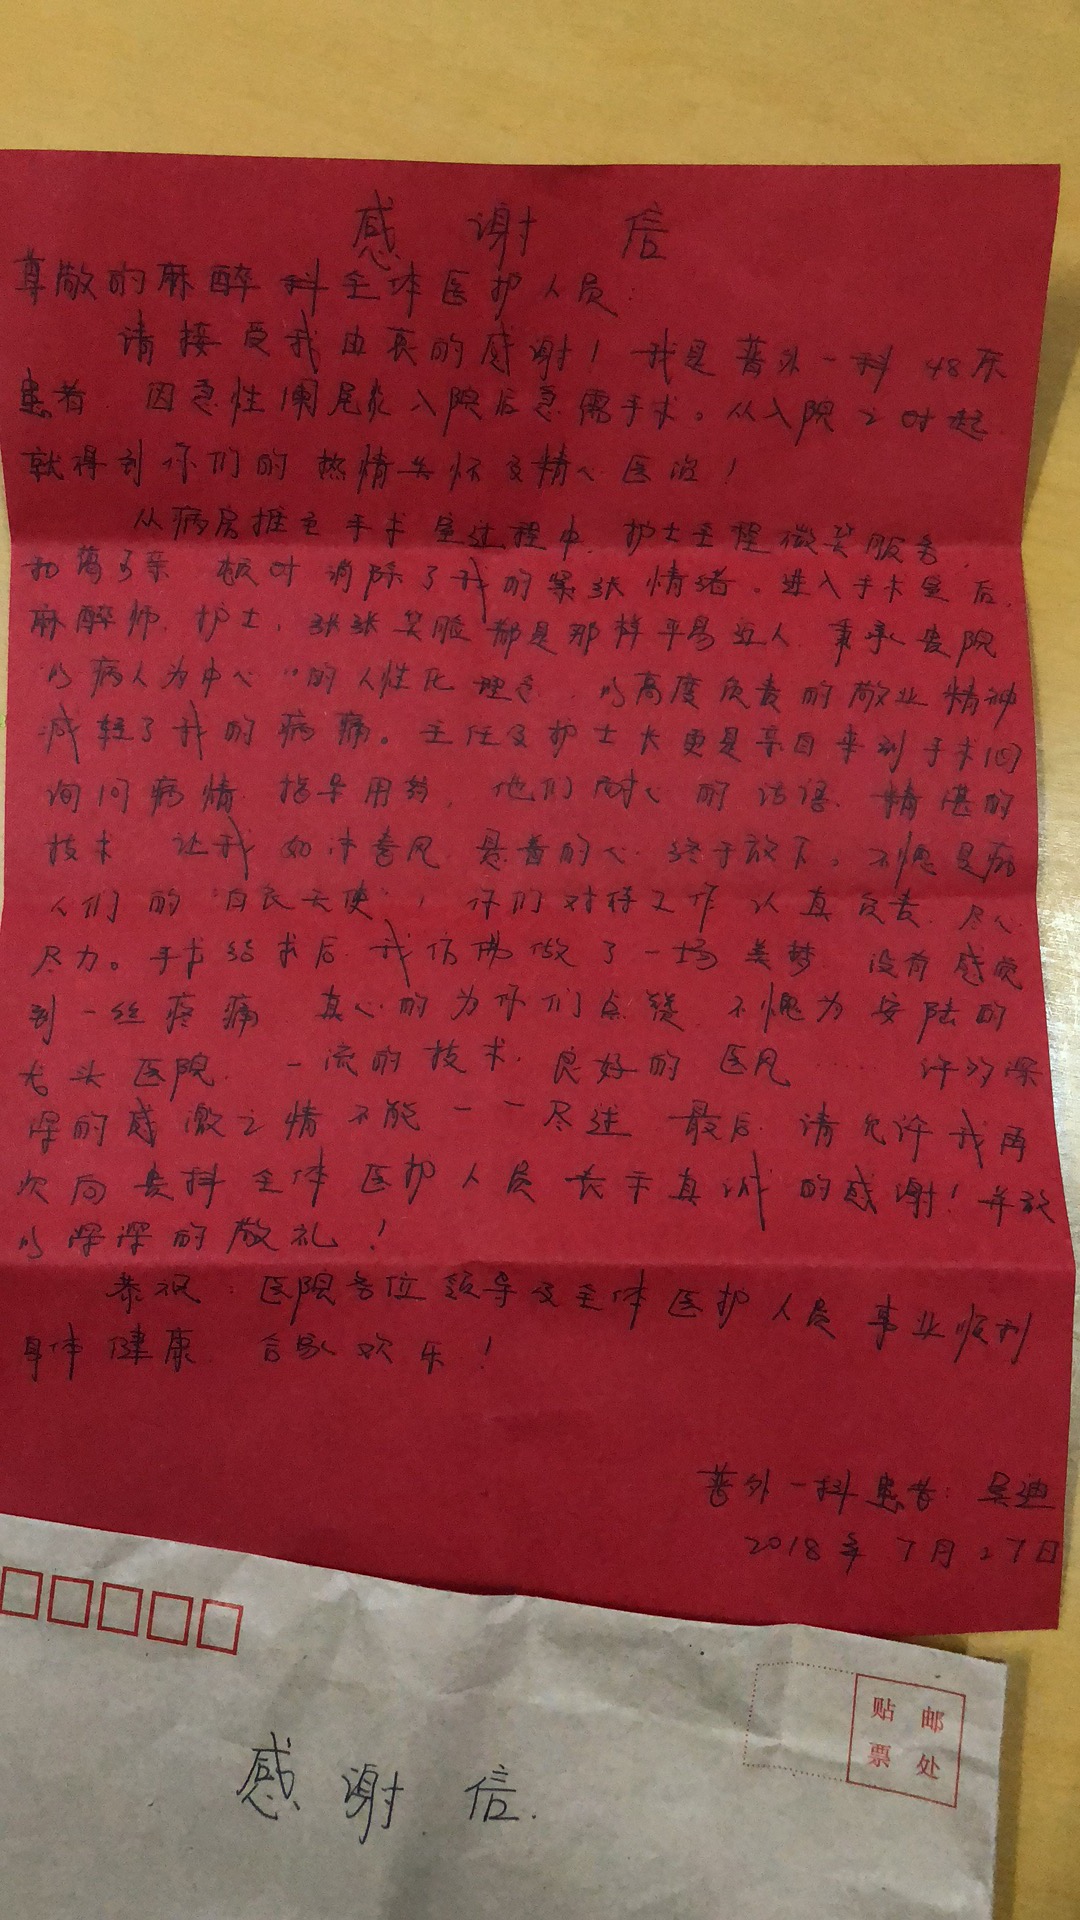 感谢信
尊敬的麻醉科全体医护人员:
请接受我由衷的感谢！我是普外一科48床
患者 因急性阑尾炎入院后急需手术。从入院之时起
就得到你们的热情关怀及精心医治！
从病房推至手术室过程中,护士全程微笑服务,
和蔼可亲 顿时消除了我的紧张情绪。进入手术室后,
麻醉师、护士,张张笑脸都是那样平易近人 秉承贵院
"以病人为中心"的人性化理念,以高度负责的敬业精神
减轻了我的病痛。主任及护士长更是亲自来到手术间
询问病情 指导用药,他们耐心的话语、精湛的
技术 让我如沐春风 悬着的心终于放下。不愧是病
人们的"白衣天使",你们对待工作认真负责、尽心
尽力。手术结束后 我仿佛做了一场美梦 没有感觉
到一丝疼痛 真心的为你们点赞 不愧为安陆的
龙头医院 一流的技术、良好的医风…… 许多深
深的感激之情不能一一尽述 最后 请允许我再
次向贵科全体医护人员表示真诚的感谢！并致
以深深的敬礼！
恭祝:医院各位领导及全体医护人员事业顺利
身体健康 合家欢乐！
普外一科患者:吴迪
2018年7月27日
贴邮
票处
感谢信.